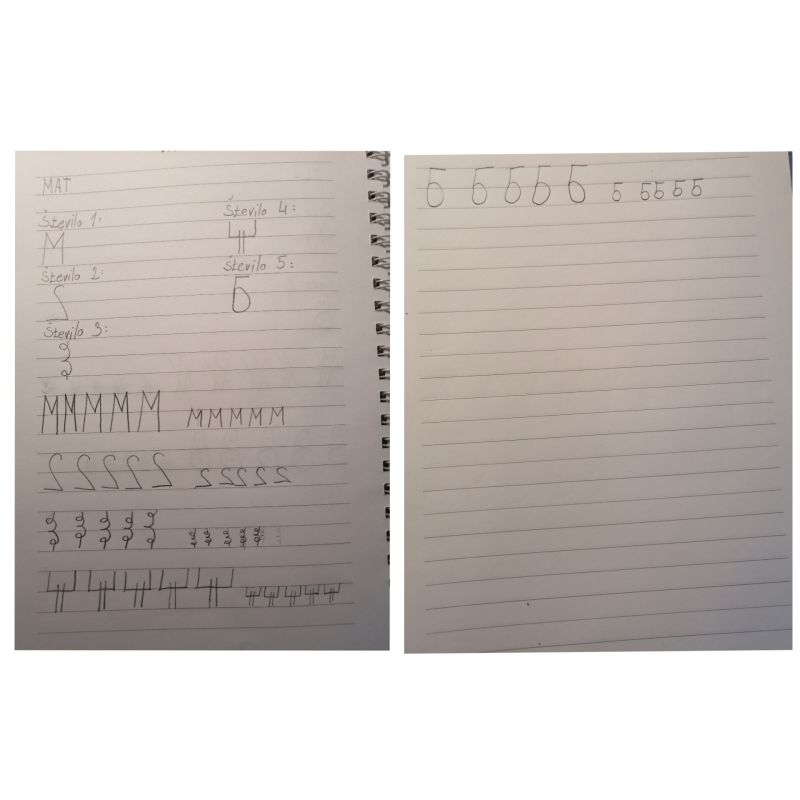 MAT
Število 1:
M
Število 2:
2
Število 3:
3
Število 4:
Število 5:
Б
M M M M M M M M M M
2 2 2 2 2 2 2 2 2 2
Б Б Б Б Б Б Б Б Б Б